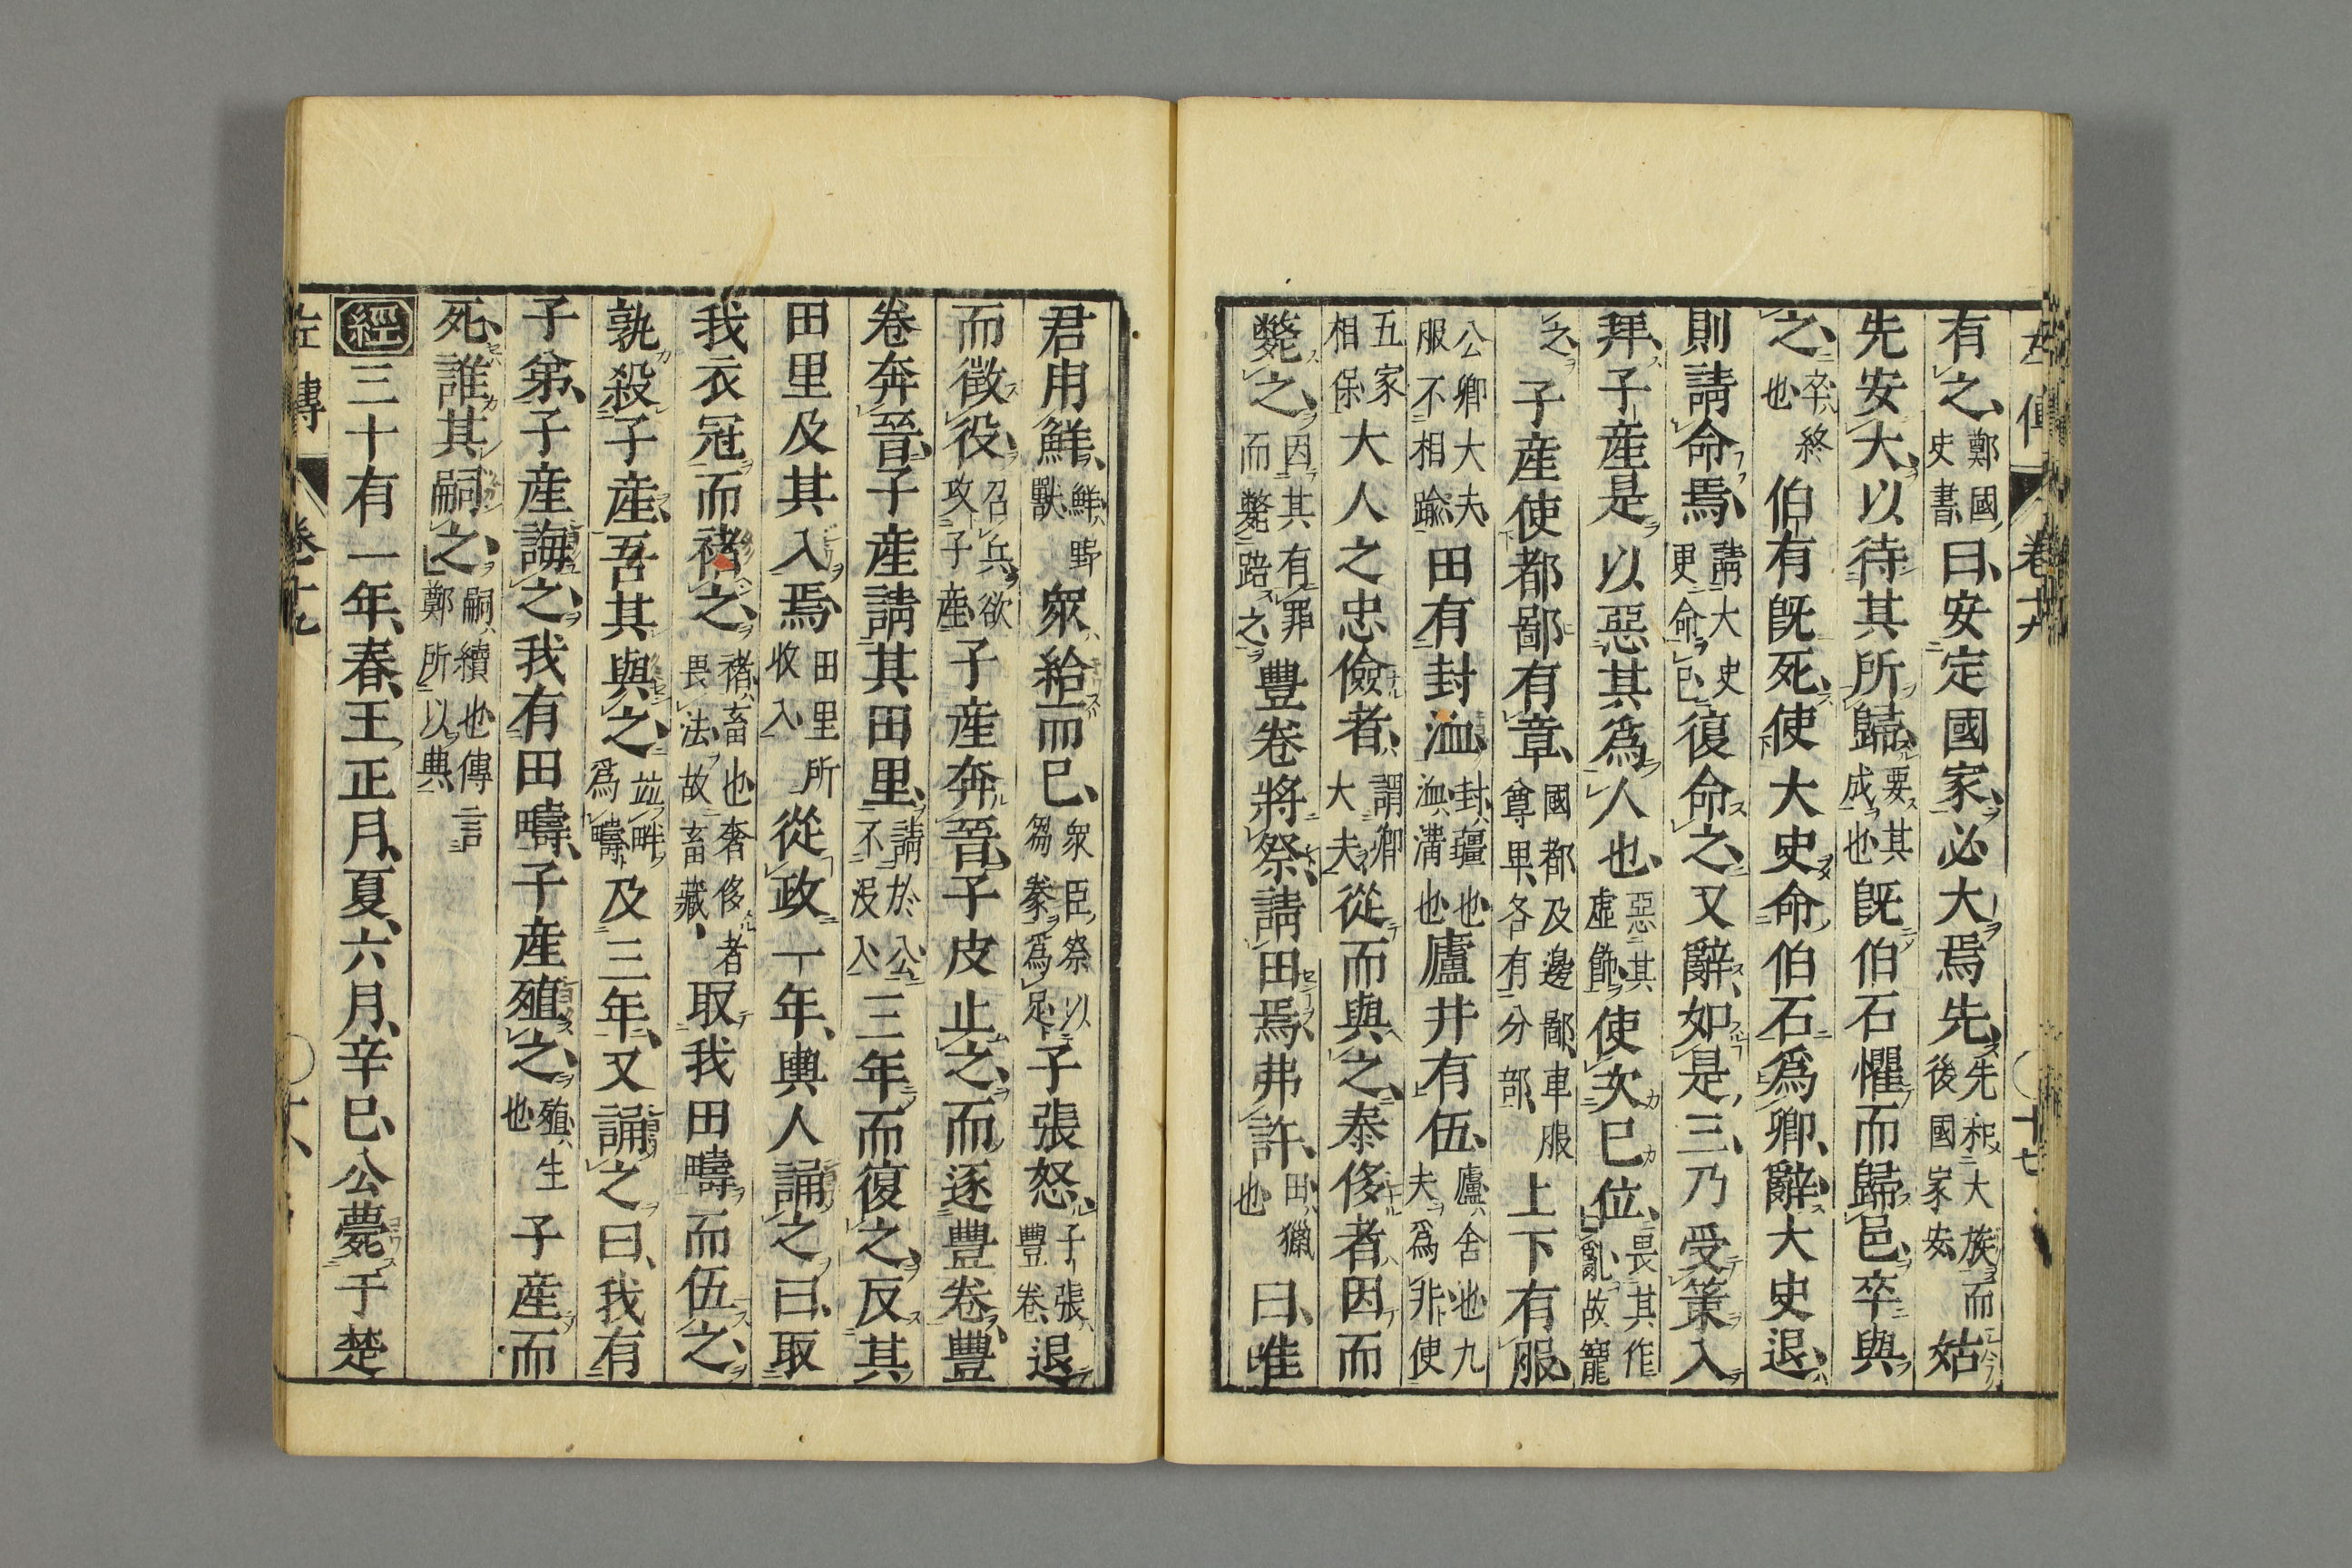 有之、鄭國史書、曰、安定國家、必大焉先、先和大族而後國家安、姑
先安大以待其所歸、要其成也、既伯石懼而歸邑、卒與
之、卒、終也、伯有既死、使大史命伯石爲卿、辭、大史退、
則請命焉、請大史更命已、復命之、又辭、如是三、乃受策入
拜、子産是以惡其爲人也、惡其虚飾、使次己位、畏其作亂、故寵
之、子産使都鄙有章、國都及邊鄙、車服尊卑、各有分部、上下有服、
公卿大夫、服不相踰、田有封洫、封疆也、洫溝也、廬井有伍、廬、舍也、九夫爲井、使
五家相保、大人之忠儉者、謂卿大夫、從而與之、泰侈者、因而
斃之、因其有罪而斃踣之、豐卷將祭、請田焉、弗許、田、獵也、曰、唯
君用鮮、鮮、野獸、衆給而已、衆臣祭以芻豢爲足、子張怒、子張、豐卷、退
而徴役、召兵欲攻子産、子産奔晉、子皮止之、而逐豐卷、豐
卷奔晉、子産請其田里、請於公不没入、三年而復之、反其
田里及其入焉、田里所收入、從政一年、輿人誦之曰、取
我衣冠而褚之、褚、畜也、奢侈者畏法、故畜藏、取我田疇而伍之、
孰殺子産、吾其與之、並畔爲疇、及三年、又誦之曰、我有
子弟、子産誨之、我有田疇、子産殖之、殖、生也、子産而
死、誰其嗣之、嗣、續也、傳言鄭所以興、
經三十有一年、春、王正月、夏、六月、辛巳、公薨于楚
左傳 卷十九